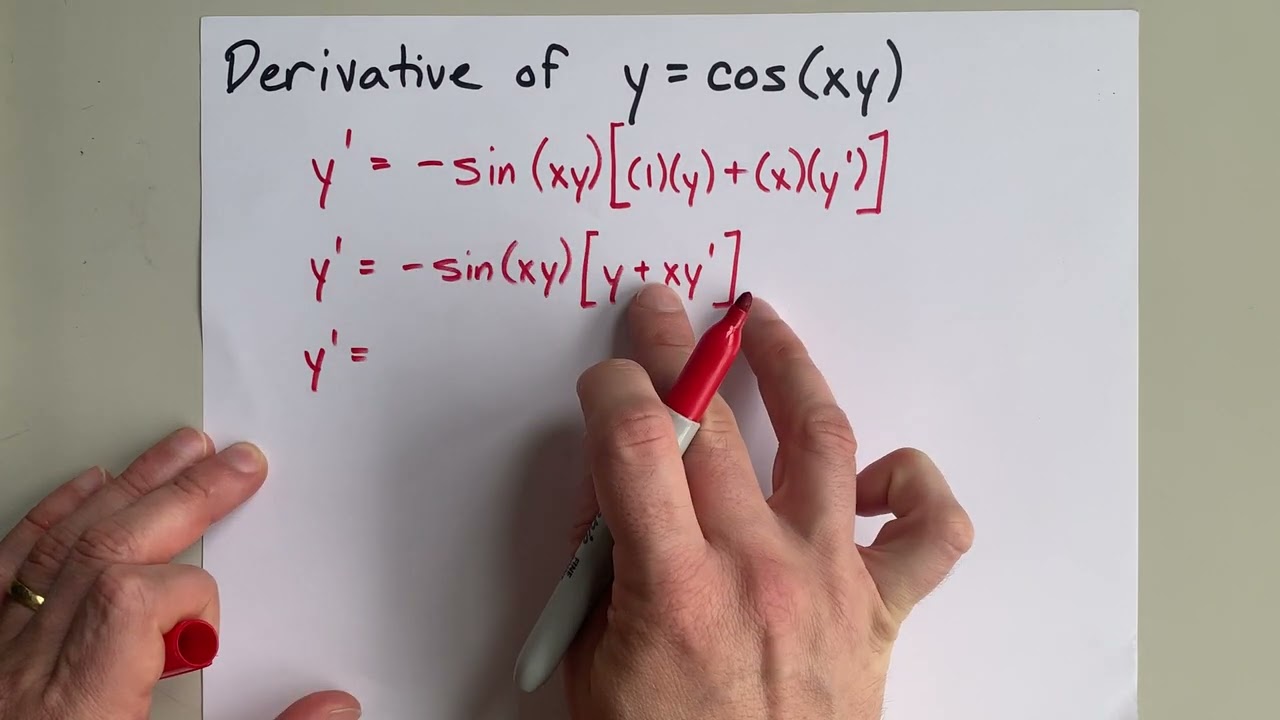 Derivative of y = cos(xy)
y' = -sin(xy)[(1)(y)+(x)(y')]
y' = -sin(xy)[y+xy']
y' =
FINE